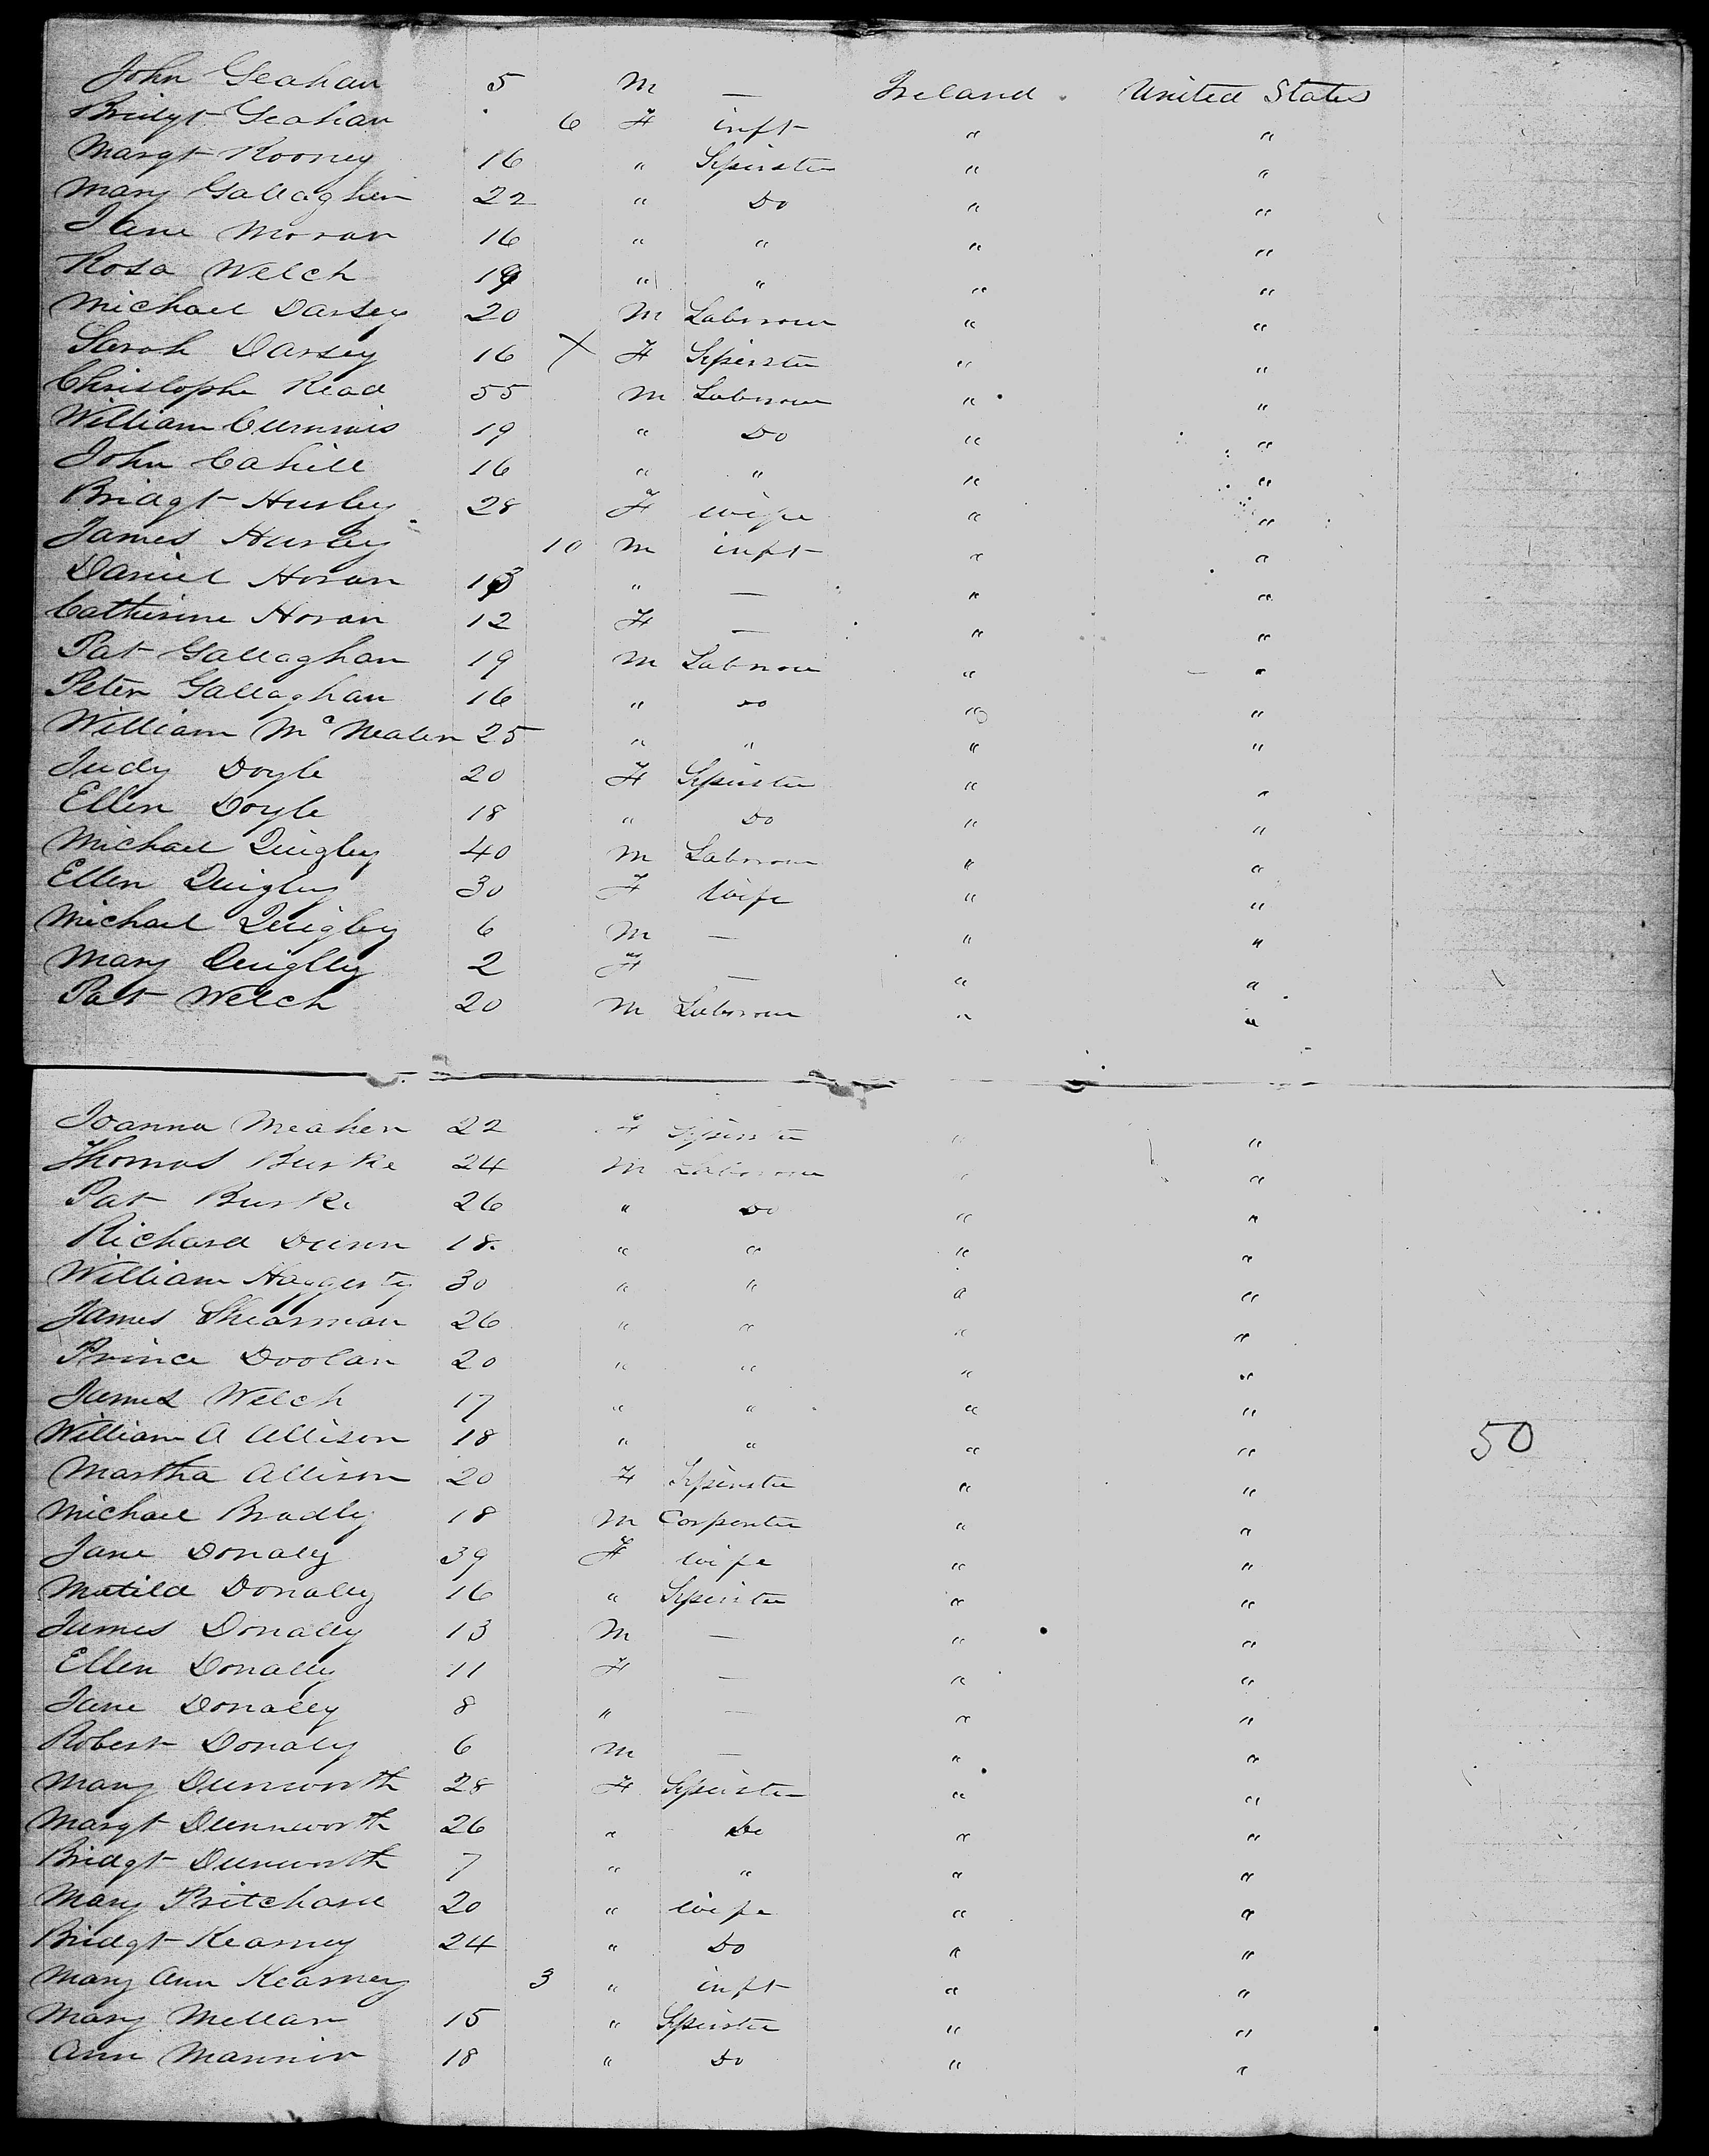 John Geahan 5 M — Ireland United States
Bridgt Geahan 6 F inft " "
Margt Rooney 16 " Spinster " "
Mary Gallagher 22 " Do " "
Jane Moran 16 " " " "
Rosa Welch 19 " " " "
Michael Darsey 20 M Labrour " "
Sarah Darsey 16 X F Spinster " "
Christophe Read 55 M Labrour " "
William Cummis 19 " Do " "
John Cahill 16 " " " "
Bridgt Hurley 28 F wife " "
James Hurley 10 M inft " "
Daniel Horan 13 " — " "
Catherine Horan 12 F — " "
Pat Gallaghan 19 M Labrour " "
Peter Gallaghan 16 " Do " "
William Mc 25 " " " "
Judy Doyle 20 F Spinster " "
Ellen Doyle 18 " Do " "
Michael Quigley 40 M Labrour " "
Ellen Quigley 30 F Wife " "
Michael Quigley 6 M — " "
Mary Quiglly 2 F — " "
Pat Welch 20 M Labrour " "
Joanna Meaher 22 F Spinster " "
Thomas Burke 24 M Labrour " "
Pat Burke 26 " Do " "
Richard Dunn 18 " " " "
William Haggerty 30 " " " "
James Shearman 26 " " " "
Prince Doolan 20 " " " "
James Welch 17 " " " "
William A Allison 18 " " " " 50
Martha Allison 20 F Spinster " "
Michael Bradly 18 M Carpenter " "
Jane Donaly 39 F Wife " "
Matild Donally 16 " Spinster " "
James Donally 13 M — " "
Ellen Donally 11 F — " "
Jane Donally 8 " — " "
Robert Donaly 6 M — " "
Mary Dunworth 28 F Spinster " "
Margt Dunnworth 26 " Do " "
Bridgt Dunworth 7 " " " "
Mary Pritchard 20 " Wife " "
Bridgt Kearney 24 " Do " "
Mary Ann Kearney 3 " inft " "
Mary Mellan 15 " Spinster " "
Ann Mannin 18 " Do " "